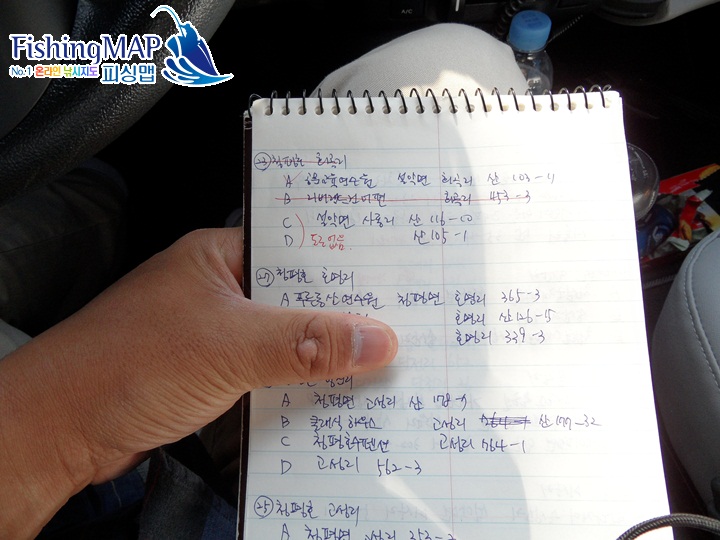 FishingMAP
No.1 온라인 낚시지도 피싱맵
A/C
23 청평호 회곡리
A 설악면 회곡리 산 103-4
B 회곡리 453-3
C 설악면 사룡리 산 116-10
D 도로없음 산 105-1
27 청평호 호명리
A 푸른동산연수원 청평면 호명리 365-3
호명리 산 126-5
호명리 339-3
A 청평면 고성리 산 178-9
B 클래식 하우스 고성리 산 177-32
C 청평호수펜션 고성리 764-1
D 고성리 562-3
25 청평호 고성리
A 청평면 고성리 353-2